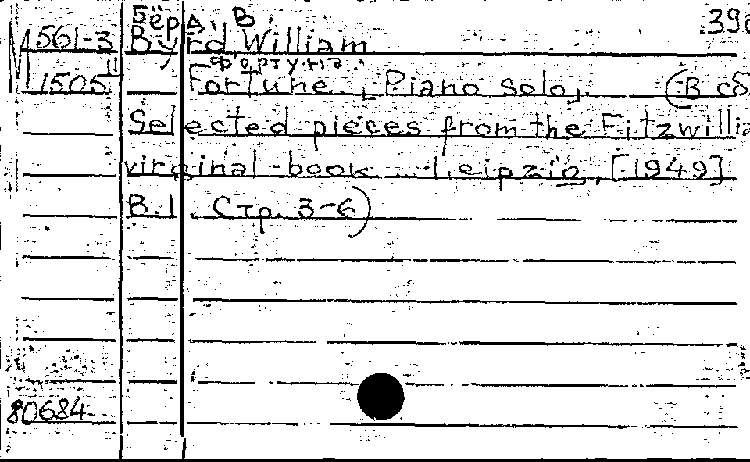 Бёрд, В. 39
М 561-3 Byrd William
Фортуна.
1505 Fortune. [Piano solo]. (В сб
Selected pieces from the Fitzwillia
virginal-book. Leipzig, [1949]
B.1. Стр. 3-6)
80684